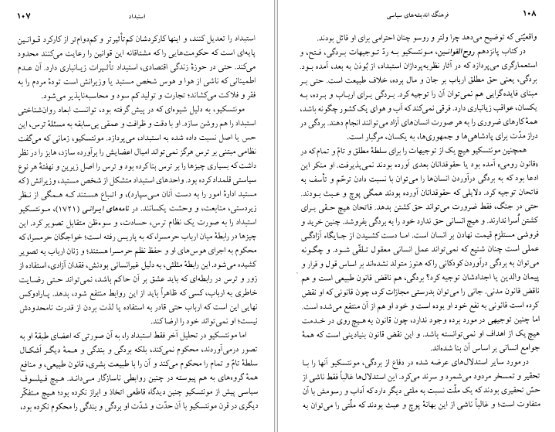 ۱۰۸ فرهنگ اندیشه‌های سیاسی
واقعیّتی که توضیح می‌دهد چرا ولتر و روسو چنان احترامی برای او قائل بودند.
در کتاب پانزدهم روح‌القوانین، مونتسکیو به ردّ توجیهات بردگی، فتح، و
استعمارگری می‌پردازد که در آثار نظریه‌پردازان استبداد، از بُودن به بعد، آمده بود.
بردگی، یعنی حق مطلق ارباب بر جان و مال برده، خلاف طبیعت است. حتی بر
مبنای فایده‌گرایی هم نمی‌توان آن را توجیه کرد. بردگی برای ارباب و برده، به
یکسان، عواقب زیانباری دارد. فرقی نمی‌کند که آب و هوای یک کشور چگونه باشد،
همهٔ کارهای ضروری را به هر صورت انسان‌های آزاد می‌توانند انجام دهند. بردگی در
دراز مدّت برای پادشاهی‌ها و جمهوری‌ها، به یکسان، مرگبار است.
همچنین مونتسکیو هیچ یک از توجیهات را برای سلطهٔ مطلق و تامّ و تمام که در
«قانون رومی» آمده بود یا حقوقدانان بعدی آورده بودند، نمی‌پذیرفت. او منکر این
ادعا بود که بردگی درآوردن انسان‌ها را می‌توان با نسبت دادن ترحّم و تأسف به
فاتحان توجیه کرد. دلایلی که حقوقدانان آورده بودند همگی پوچ و عبث بودند.
حتی در جنگ، فقط ضرورت می‌تواند حق کشتن بدهد. فاتحان هیچ حقی برای
کشتن اُسرا ندارند. و هیچ انسانی حق ندارد خود را به بردگی بفروشد. چنین خرید و
فروشی مستلزم قیمت نهادن بر انسان است. امـا دست کشیدن از جایگاه آزادگی
عملی است چنان شنیع که نمی‌تواند عمل انسانی معقول تـلقّی شـود. و چگونه
می‌توان به بردگی درآوردن کودکانی را که هنوز متولد نشده‌اند بر اساس قول و قرار و
پیمان والدین یا اجدادشان توجیه کرد؟ بردگی، هم ناقض قانون طبیعی است و هم
ناقض قانون مدنی. جانی را می‌توان بدرستی مجازات کرد، چون قانونی که او نقض
کرده است قانونی به نفع خود او بوده است و خود او هم از آن منتفع می‌شده است.
اما چنین توجیهی در مورد برده وجود ندارد، چون قانون به هیچ روی در خدمت
هیچ یک از اهداف او نمی‌توانسته باشد. و این ناقض آن قانون بنیادینی است که همه
جوامع انسانی بر اساس آن بنا شده‌اند.
در مورد سایر استدلال‌های عرضه شده در دفاع از بردگی، مونتسکیو آنها را با
تحقیر و تمسخر مردود می‌شمرد و سرند می‌کرد. این استدلال‌ها غالباً فقط ناشی از
حسّ تحقیری بودند که یک ملّت نسبت به ملتی دیگر دارد که آداب و رسومش با آن
متفاوت است؛ و غالباً ناشی از این بهانهٔ پوچ و عبث بودند که ملّتی را می‌توان به
استبداد ۱۰۷
استبداد را تعدیل کنند، و اینها کارکردشان کم‌تأثیرتر و کم‌دوام‌تر از کارکرد قـوانـین
پایه‌ای است که حکومت‌هایی را که مشتاقانه این قوانین را رعایت می‌کنند محدود
می‌کند. حتی در حوزهٔ زندگی اقتصادی، استبداد تأثیرات زیانباری دارد. آن عدم
اطمینانی که ناشی از هوا و هوس شخص مستبد یا وزیرانش است تودهٔ مردم را به
فقر و فلاکت می‌کشاند؛ تجارت و تولید کم سود و محاسبه‌ناپذیر می‌شود.
مونتسکیو، به دلیل شیوه‌ای که در پیش گرفته بود، توانست ابعاد روان‌شناختی
استبداد را هم روشن سازد. او با دقّت و ظرافت و عمقی بی‌سابقه به مسئلهٔ ترس، این
حس یا اصل نسبت داده شده به استبداد، می‌پردازد. مونتسکیو، زمانی که می‌گفت
نظامی مبتنی بر ترس هرگز نمی‌تواند امیال اعضایش را برآورده سازد، هابز را در نظر
داشت که بسیاری چیزها را بر ترس بنا کرده بود و ترس را اصل زیرین و نهفتهٔ هر نوع
سیاستی قلمداد کرده بود. واحدهای استبداد متشکل از شخص مستبد، وزیرش (که
مستبد ادارهٔ امور را به دست آنان می‌سپارد)، و اتباع هستند کـه هـمگی از نظر
زیردستی، متابعت، و وحشت یکسانند. در نامه‌های ایرانی (۱۷۲۱)، مونتسکیو
استبداد را به صورت یک نظام ترس، حسادت، و سوءظن متقابل تصویر کرد. این
چیزها در رابطهٔ میان ارباب حرمسرا، که به پاریس رفته است؛ خواجگان حرمسرا، که
محکوم به اجرای هوس‌های او و حفظ نظم حرمسرا هستند؛ و زنان ارباب به تصویر
کشیده می‌شود. این رابطهٔ مثلثی، به دلیل غیرانسانی بودنش، فقدان آزادی، استفاده از
زور و ترس در رابطه‌ای که باید عشق بر آن حاکم باشد، نمی‌تواند حتی رضایت
خاطری به ارباب، کسی که ظاهراً باید از این روابط منتفع شود، بدهد. پـارادوکس
نهایی این است که ارباب حتی قادر به استفاده یا لذت بردن از قدرت نامحدودش
نیست؛ او نمی‌تواند خود را ارضا کند.
اما مونتسکیو در تحلیل آخر فقط استبداد را، به آن صورتی که اعضای طبقهٔ او به
تصور درمی‌آوردند، محکوم نمی‌کند، بلکه بردگی و بندگی و همهٔ دیگر اَشکال
سلطهٔ تامّ و تمام را محکوم می‌کند و آن را با طبیعت بشری، قانون طبیعی، و منافع
همهٔ گروه‌های به هم پیوسته در چنین روابطی ناسازگار مـی‌دانـد. هیچ فیلسوف
سیاسی پیش از مونتسکیو چنین دیدگاه قاطعی اتخاذ و ابراز نکرده بود؛ هیچ متفکّر
دیگری در قرن مونتسکیو با آن حدّت و شدّت او بردگی و بندگی را محکوم نکرده بود،